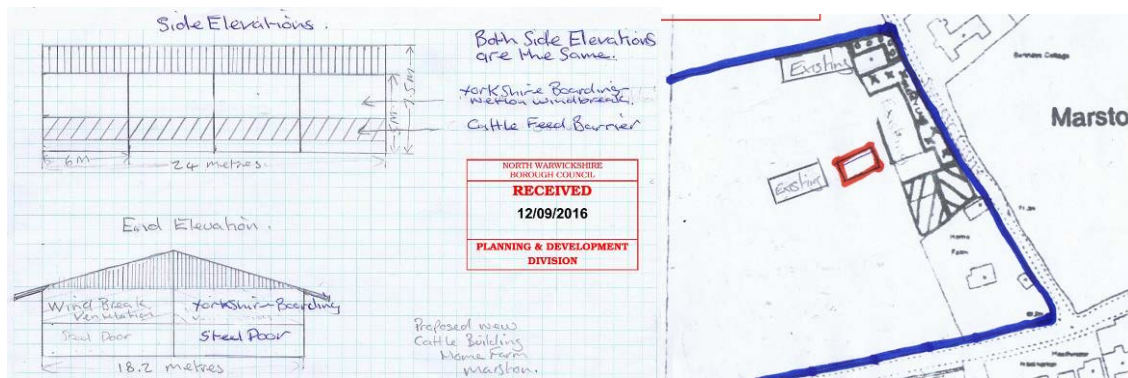 Side Elevations.
Both Side Elevations
are the Same.
Yorkshire Boarding
Cattle Feed Barrier
5M
7.5M
6M
24 metres
NORTH WARWICKSHIRE
BOROUGH COUNCIL
RECEIVED
12/09/2016
PLANNING & DEVELOPMENT
DIVISION
End Elevation.
Wind Break
Ventilation
Yorkshire Boarding
Steel Door
Steel Door
18.2 metres
Proposed new
Cattle Building
Home Farm
Marston.
Existing
Existing
Sunness Cottage
Marsto
Home
Farm